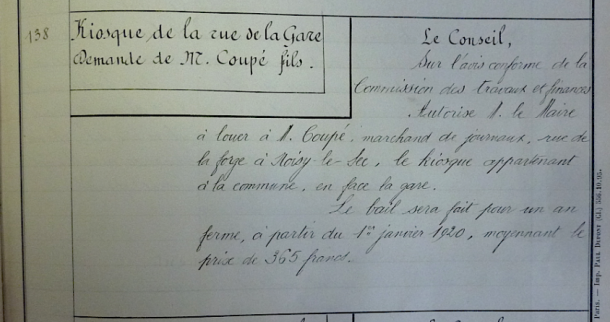 138
Kiosque de la rue de la Gare
Demande de M. Coupé fils.
Le Conseil,
Sur l'avis conforme de la
Commission des travaux et finances
Autorise M. le Maire
à louer à M. Coupé, marchand de journaux, rue de
la forge à Noisy-le-Sec, le kiosque appartenant
à la commune, en face la gare.
Le bail sera fait pour un an
ferme, à partir du 1er janvier 1920, moyennant le
prix de 365 francs.
Paris. — Imp. Paul Dupont (Cl.)